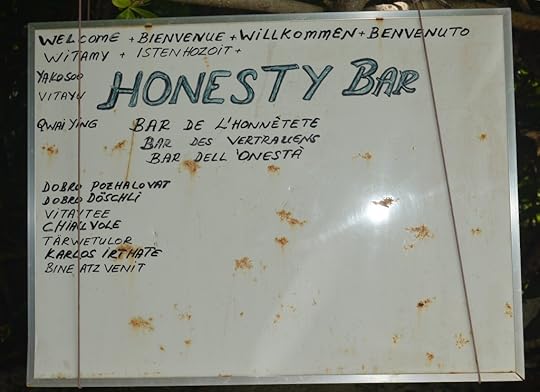 WELCOME + BIENVENUE + WILLKOMMEN + BENVENUTO
WITAMY + ISTENHOZOIT +
YAKOSOO
VITAYU
HONESTY BAR
QWAI YING
BAR DE L'HONNÊTETE
BAR DES VERTRAUENS
BAR DELL'ONESTÀ
DOBRO POZHALOVAT
DOBRO DÖSCHLI
VITAYTEE
CHIALVOLE
TARWETULOR
KARLOS IRTHATE
BINE ATZ VENIT